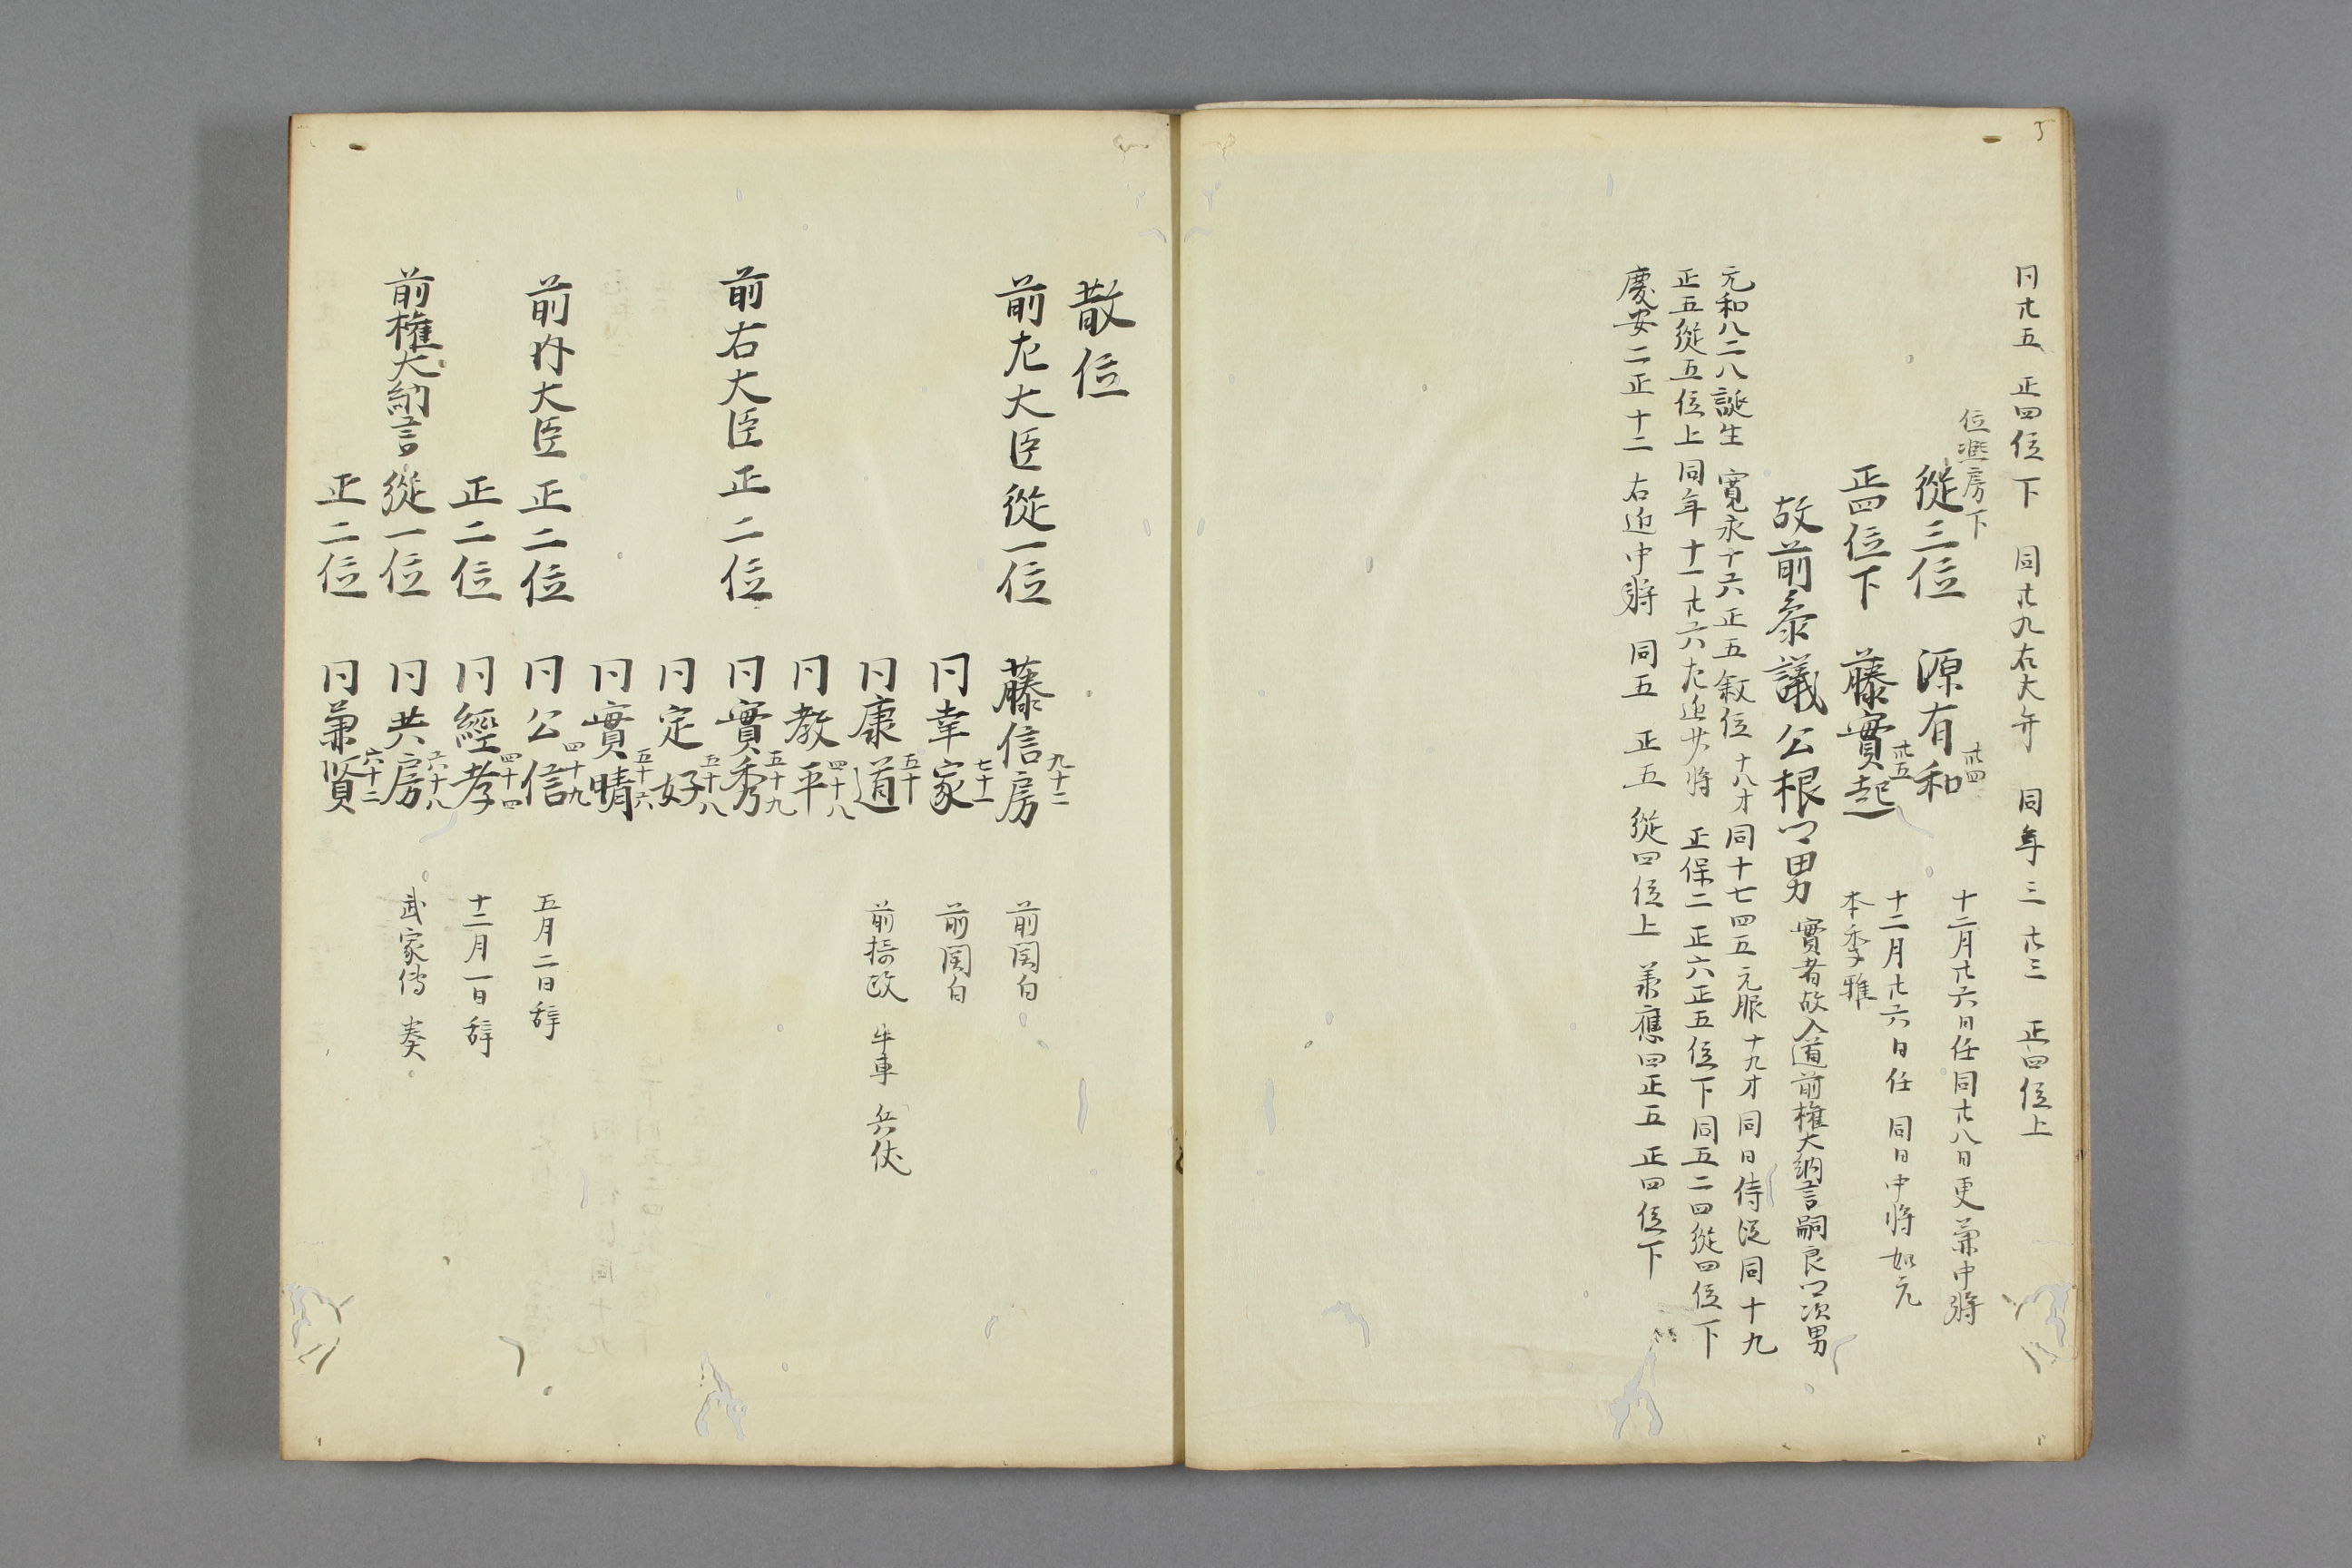 同廿五 正四位下 同廿九右大弁 同年三廿三 正四位上
位凞房下
從三位 源有和 卅四 十二月廿六日任同廿八日更兼中將
正四位下 藤實起 卅五 十二月廿六日任 同日中将如元
本季雅
故前参議公根卿男 實者故入道前権大納言嗣良卿次男
元和八二八誕生 寛永十六正五叙位 十八才 同十七四五元服 十九才 同日侍従 同十九
正五從五位上 同年十一廿六左近少将 正保二正六正五位下 同五二四從四位下
慶安二正十二 右近中将 同五 正五 從四位上 兼應四正五 正四位下
散位
前左大臣 從一位 藤信房 九十二 前関白
同幸家 七十一 前関白
同康道 五十 前摂政 牛車 兵仗
同教平 四十八
前右大臣 正二位 同實秀 五十九
同定好 五十八
同實晴 五十六
前内大臣 正二位 同公信 四十九 五月二日辞
正二位 同經孝 四十四 十二月一日辞
前権大納言 從一位 同共房 六十八 武家傳奏
正二位 同兼賢 六十二